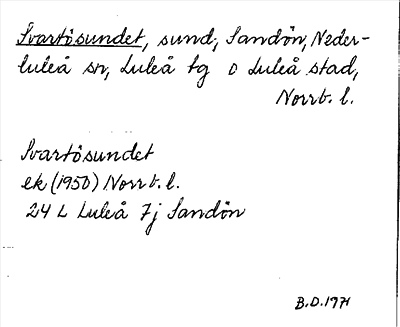 Svartösundet, sund, Sandön, Neder-
luleå sn, Luleå tg o Luleå stad,
Norrb. l.
Svartösundet
ek (1950) Norrb. l.
24 L Luleå 7j Sandön
B.D. 1971